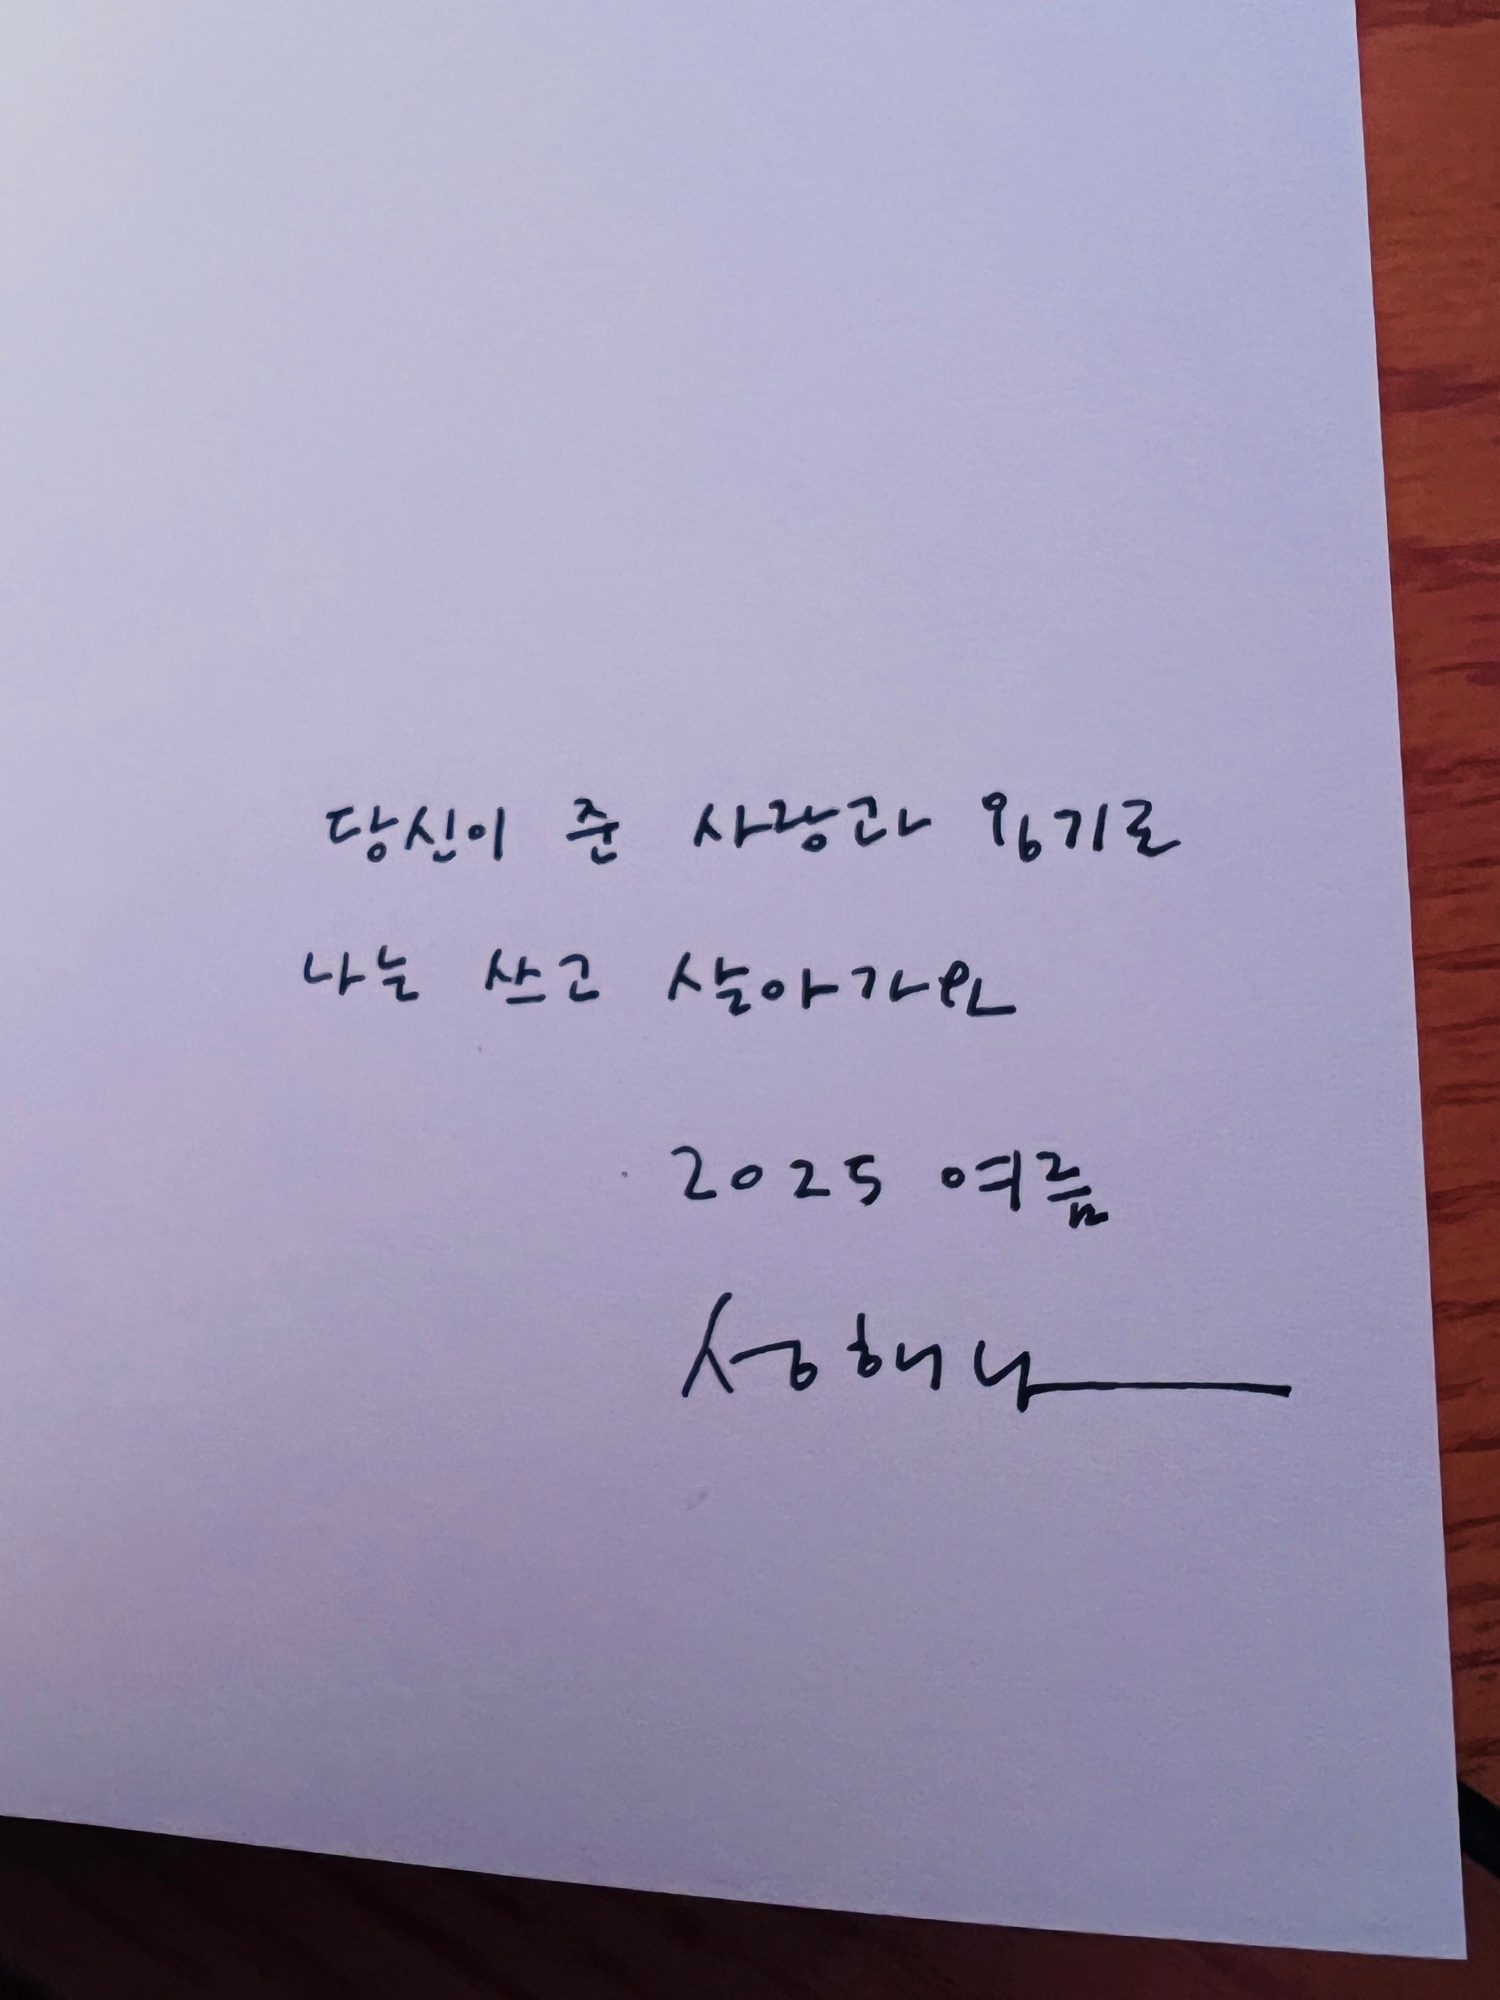 당신이 준 사랑과 용기로
나는 쓰고 살아가요
2025 여름
성해나